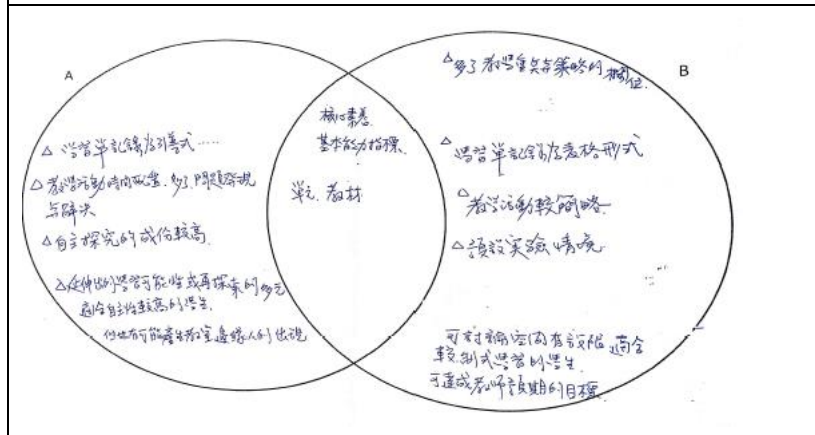 A
△ 學習單記錄為引導式......
△ 教學活動時間配置,多了問題發現
与解决
△ 自主探究的成份較高.
△ 延伸出的學習可能性或再探索的多元
適合自主性較高的學生.
但也有可能產生教室邊緣人的出現
核心素養.
基本能力指標.
單元、教材
B
△ 多了教學重點策略的欄位.
△ 學習單記錄為表格形式
△ 教学活動較簡略.
△ 預設实驗情境
可討論空間有設限,適合
較制式學習的學生.
可達成老师預期的目標